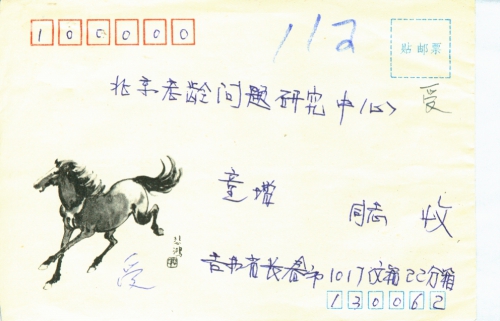 100000
112
贴邮票
北京老龄问题研究中心
受
童增
同志 收
悲鸿
受
吉林省长春市1017文箱22分箱
130062